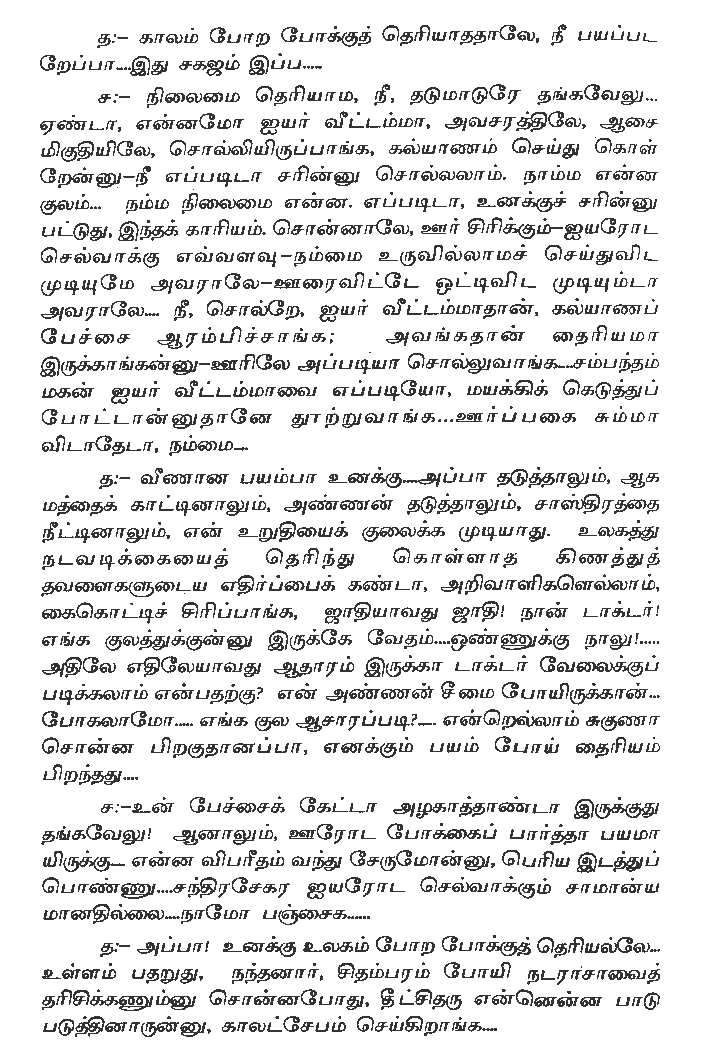 த:– காலம் போற போக்குத் தெரியாததாலே, நீ பயப்பட
றேப்பா....இது சகஜம் இப்ப.....
ச:– நிலைமை தெரியாம, நீ, தடுமாடுரே தங்கவேலு...
ஏண்டா, என்னமோ ஐயர் வீட்டம்மா, அவசரத்திலே, ஆசை
மிகுதியிலே, சொல்லியிருப்பாங்க, கல்யாணம் செய்து கொள்
றேண்ணு–நீ எப்படிடா சரின்னு சொல்லலாம். நாம்ம என்ன
குலம்... நம்ம நிலைமை என்ன. எப்படிடா, உனக்குச் சரின்னு
பட்டுது, இந்தக் காரியம். சொன்னாலே, ஊர் சிரிக்கும்–ஐயரோட
செல்வாக்கு எவ்வளவு–நம்மை உருவில்லாமச் செய்துவிட
முடியுமே அவராலே–ஊரைவிட்டே ஒட்டிவிட முடியும்டா
அவராலே.... நீ, சொல்றே, ஐயர் வீட்டம்மாதாண், கல்யாணப்
பேச்சை ஆரம்பிச்சாங்க; அவங்கதான் தைரியமா
இருக்காங்கண்ணு–ஊரிலே அப்படியா சொல்லுவாங்க....சம்பந்தம்
மகன் ஐயர் வீட்டம்மாவை எப்படியோ, மயக்கிக் கெடுத்துப்
போட்டாண்னுதானே தூற்றுவாங்க...ஊர்ப்பகை சும்மா
விடாதேடா, நம்மை....
த:– வீணான பயம்பா உனக்கு....அப்பா தடுத்தாலும், ஆக
மத்தைக் காட்டினாலும், அண்ணண் தடுத்தாலும், சாஸ்திரத்தை
நீட்டினாலும், என் உறுதியைக் குலைக்க முடியாது. உலகத்து
நடவடிக்கையைத் தெரிந்து கொள்ளாத கிணத்துத்
தவளைகளுடைய எதிர்ப்பைக் கண்டா, அறிவாளிகளெல்லாம்,
கைகொட்டிச் சிரிப்பாங்க, ஜாதியாவது ஜாதி! நான் டாக்டர்!
எங்க குலத்துக்குண்னு இருக்கே வேதம்....ஒண்ணுக்கு நாலு!.....
அதிலே எதிலேயாவது ஆதாரம் இருக்கா டாக்டர் வேலைக்குப்
படிக்கலாம் என்பதற்கு? என் அண்ணன் சீமை போயிருக்கான்...
போகலாமோ..... எங்க குல ஆசாரப்படி?..... என்றெல்லாம் சுகுணா
சொன்ன பிறகுதானப்பா, எனக்கும் பயம் போய் தைரியம்
பிறந்தது....
ச:–உன் பேச்சைக் கேட்டா அழகாத்தாண்டா இருக்குது
தங்கவேலு! ஆனாலும், ஊரோட போக்கைப் பார்த்தா பயமா
யிருக்கு.... என்ன விபரீதம் வந்து சேருமோண்ணு, பெரிய இடத்துப்
பொண்ணு....சந்திரசேகர ஐயரோட செல்வாக்கும் சாமான்ய
மானதில்லை....நாமோ பஞ்சைக......
த:– அப்பா! உனக்கு உலகம் போற போக்குத் தெரியல்லே...
உள்ளம் பதறுது, நந்தனார், சிதம்பரம் போயி நடராசாவைத்
தரிசிக்கணும்னு சொன்னபோது, தீட்சிதரு என்னென்ன பாடு
படுத்தினாருன்னு, காலட்சேபம் செய்கிறாங்க....